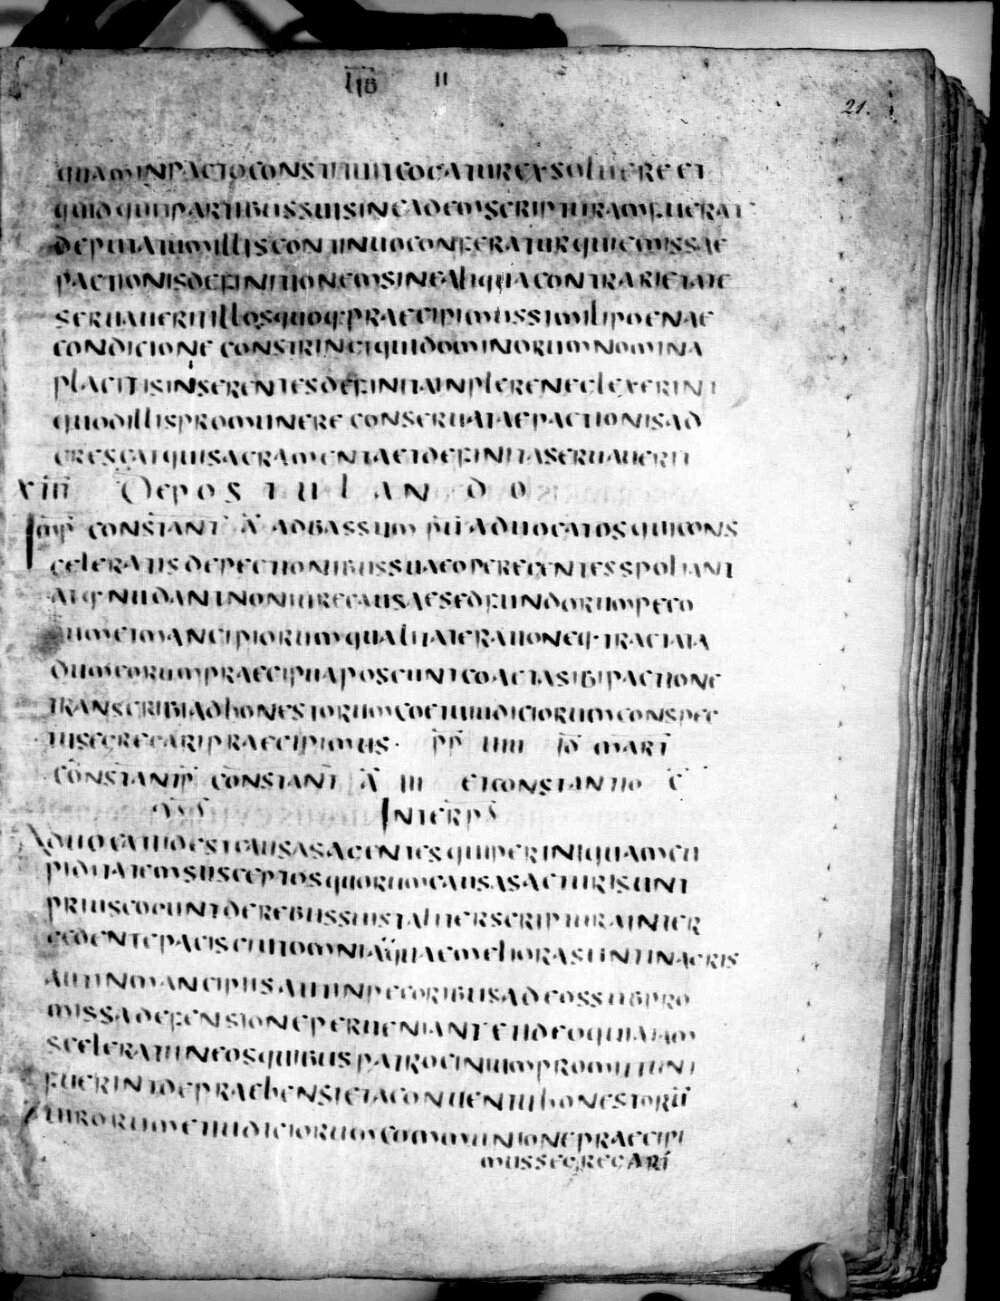 LIB II
21.
QUAM IN PACTO CONSTITUIT COGATUR EXSOLUERE ET
QUID QUID PARTIBUS SUIS IN EADEM SCRIPTURA FUERAT
DEPUTATUM ILLIS CONTINUO CONFERATUR QUI EMISSAE
PACTIONIS DEFINITIONEM SINE ALIQUA CONTRARIETATE
SERUAUERIT ILLOS QUOQ· PRAECIPIMUS SIMILI POENAE
CONDICIONE CONSTRINGI QUI DOMINORUM NOMINA
PLACITIS INSERENTES DEFINITA INPLERE NEGLEXERINT
QUOD ILLIS PRO MUNERE CONSERUATAE PACTIONIS AD
CRESCAT QUI SACRAMENTA ET DEFINITA SERUAUERIT
XIII DE POSTULANDO
IMP CONSTANT A AD BASSUM PU ADUOCATOS QUI CONS
CELERATIS DEPECTIONIBUS SUAE OPERE EGENTES SPOLIANT
ATQ· NUDANT NON IURE CAUSAE SED FUNDORUM PECO
RUM ET MANCIPIORUM QUALITATE RATIONEQ· TRACTATA
DUM EORUM PRAECIPUA POSCUNT COACTA SIBI PACTIONE
TRANSCRIBI AB HONESTORUM COETU IUDICIORUM CONSPEC
TU SEGREGARI PRAECIPIMUS· PP IIII ID MART
CONSTANTIP CONSTANT A III ET CONSTANTIO C
CONS INTERPS
ADUOCATI ID EST CAUSAS AGENTES QUI PER INIQUAM CU
PIDITATEM SUSCEPTOS QUORUM CAUSAS ACTURI SUNT
PRIUS COGUNT DE REBUS SUIS TALITER SCRIPTURA INTER
CEDENTE PACISCI UT OMNIA QUAE MELIORA SUNT IN AGRIS
AUT IN MANCIPIIS AUT IN PECORIBUS AD EOS SUB PRO
MISSA DEFENSIONE PERUENIANT ET IDEO QUI TAM
SCELERATI IN EOS QUIBUS PATROCINIUM PROMITTUNT
FUERINT DEPRAEHENSI ET A CONUENTU HONESTORU
UIRORUM ET IUDICIORUM COMMUNIONE PRAECIPI
MUS SEGREGARI